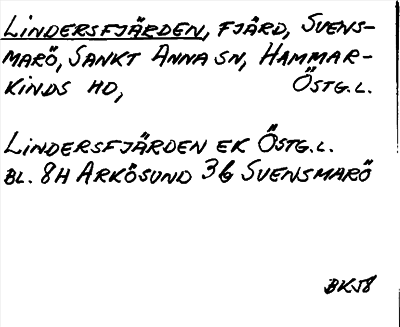 LINDERSFJÄRDEN, FJÄRD, SVENS-
MARÖ, SANKT ANNA SN, HAMMAR-
KINDS HD, ÖSTG.L.
LINDERSFJÄRDEN EK ÖSTG.L.
BL. 8H ARKÖSUND 3G SVENSMARÖ
BKJ8